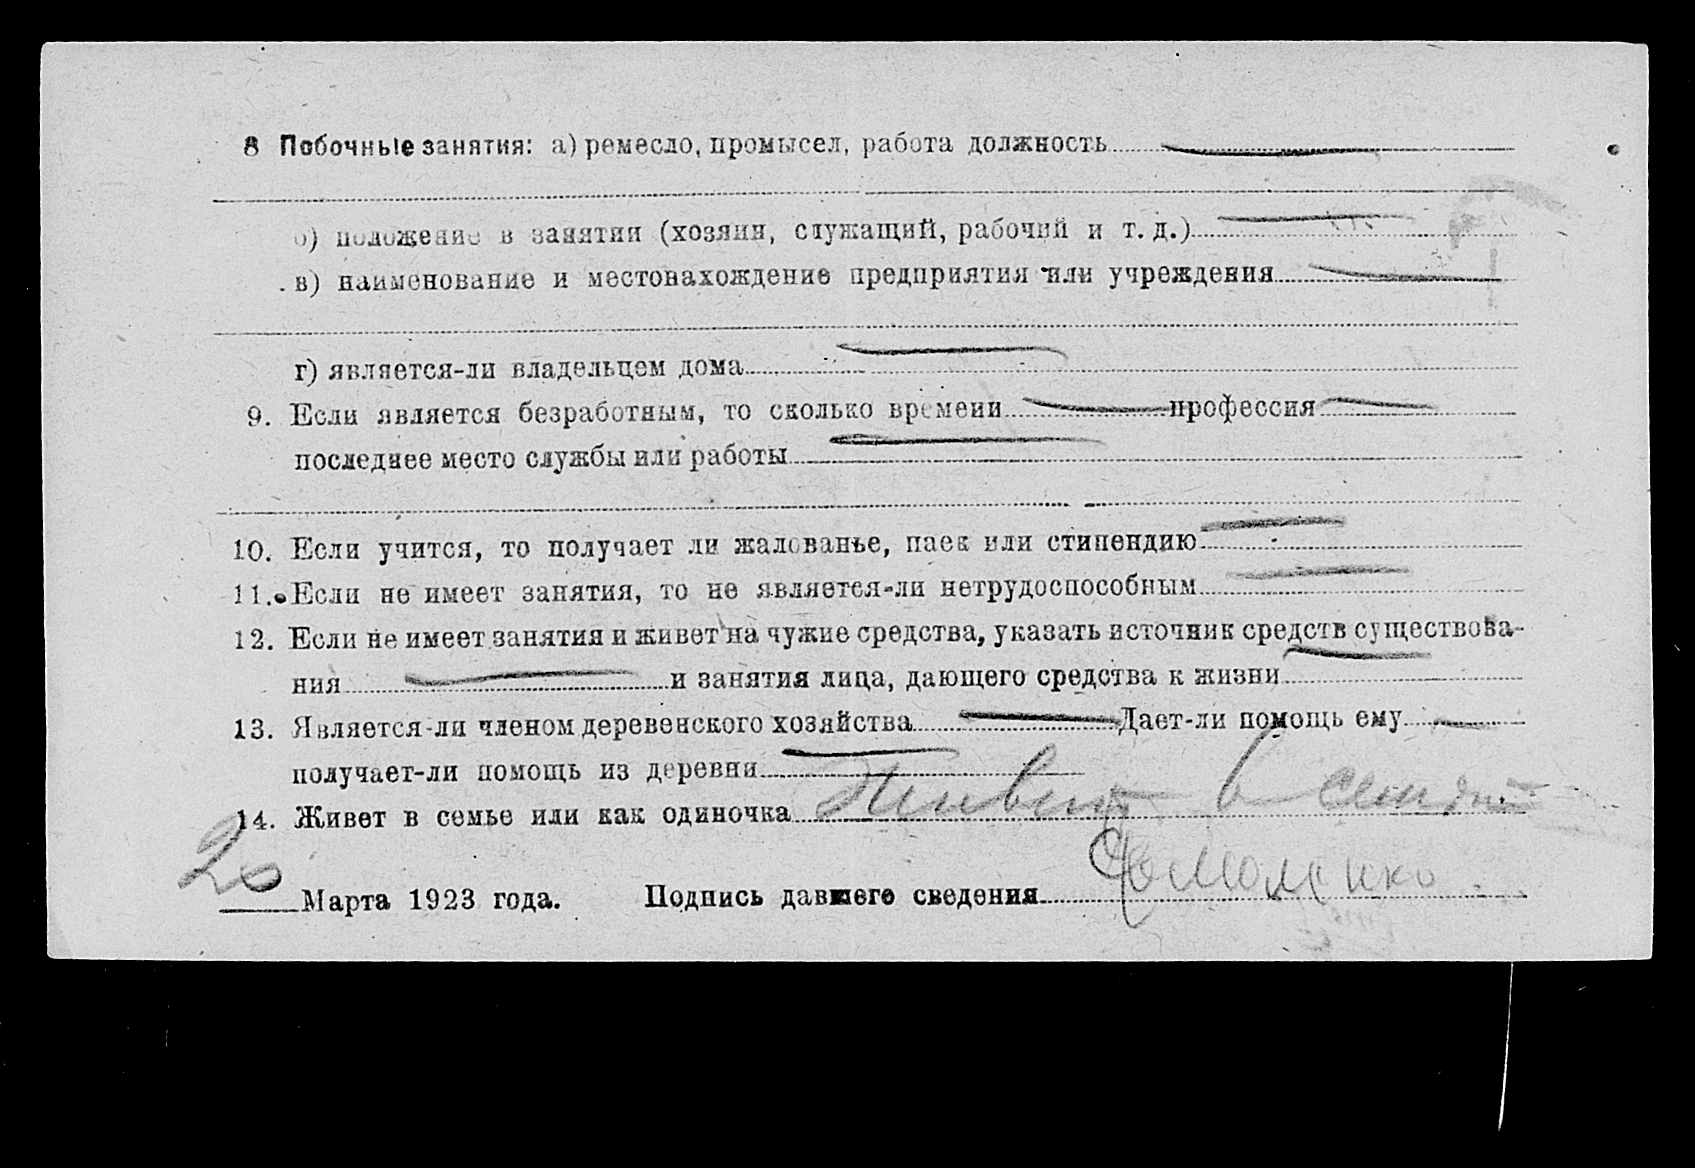 8 Побочные занятия: а) ремесло, промысел, работа должность
б) положение в занятии (хозяин, служащий, рабочий и т. д.)
в) наименование и местонахождение предприятия или учреждения
г) является-ли владельцем дома
9. Если является безработным, то сколько времени профессия
последнее место службы или работы
10. Если учится, то получает ли жалованье, паек или стипендию
11. Если не имеет занятия, то не является-ли нетрудоспособным
12. Если не имеет занятия и живет на чужие средства, указать источник средств существова-
ния и занятия лица, дающего средства к жизни
13. Является-ли членом деревенского хозяйства Дает-ли помощь ему
получает-ли помощь из деревни
14. Живет в семье или как одиночка Живет в семье
20 Марта 1923 года. Подпись давшего сведения